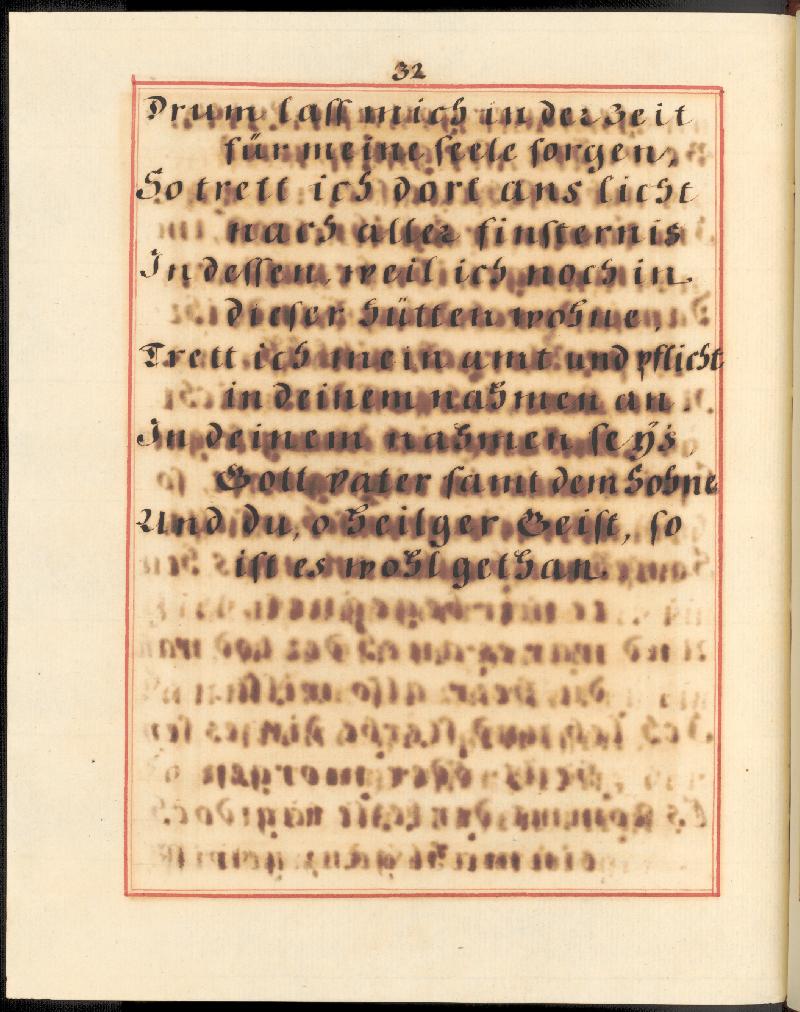 32
Drum laſſ mich in der Zeit
für meine ſeele ſorgen,
So trett ich dort ans licht
nach aller finſternis
Indeſſen, weil ich noch in
dieſer hütten wohne,
Trett ich mein amt und pflicht
in deinem nahmen an.
In deinem nahmen ſeÿs,
Gott vater ſamt dem Sohne
Und du, o heilger Geiſt, ſo
iſt es wohl gethan.